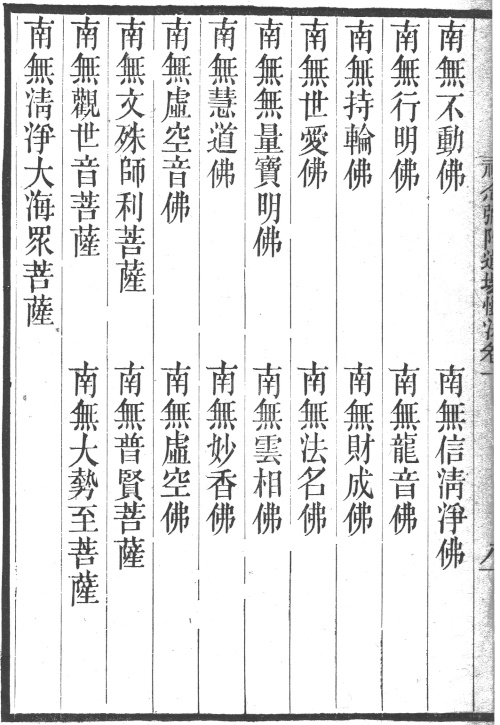 南無不動佛　南無信清淨佛
南無行明佛　南無龍音佛
南無持輪佛　南無財成佛
南無世愛佛　南無法名佛
南無無量寶明佛　南無雲相佛
南無慧道佛　南無妙香佛
南無虛空音佛　南無虛空佛
南無文殊師利菩薩　南無普賢菩薩
南無觀世音菩薩　南無大勢至菩薩
南無清淨大海眾菩薩